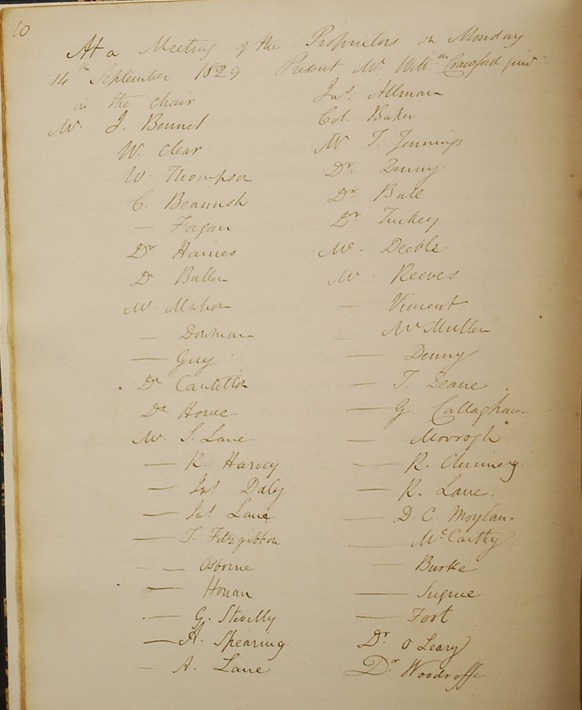 10
At a Meeting of the Proprietors on Monday
14th September 1829 Present Mr Willm Crawford junr
in the chair
Mr. J. Bennet
W. Clear
W. Thompson
C. Beamish
— Fagan
Dr Haines
D Bullen
Mr Maher
— Dorman
— Guy
Dr
Dr Howe
Mr S. Lane
— R. Harvey
— Jno Daly
— Jno Lane
— T. Fitzgibbon
— Osborne
— Honan
— G. Stevelly
— H. Spearing
— A. Lane
Jno. Allman
Col Baker
Mr T. Jennings
Dr. Denny
Dr Bull
Dr Tuckey
Mr. Deeble
Mr. Reeves
— Vincent
— McMullen
— Denny
— T. Deane
— G. Callaghan
— Morrogh
— R.
— R. Lane.
— D C Moylan.
— McCarthy
— Burke
— Sugrue
— Fort
Dr. O Leary
Dr Woodroffe